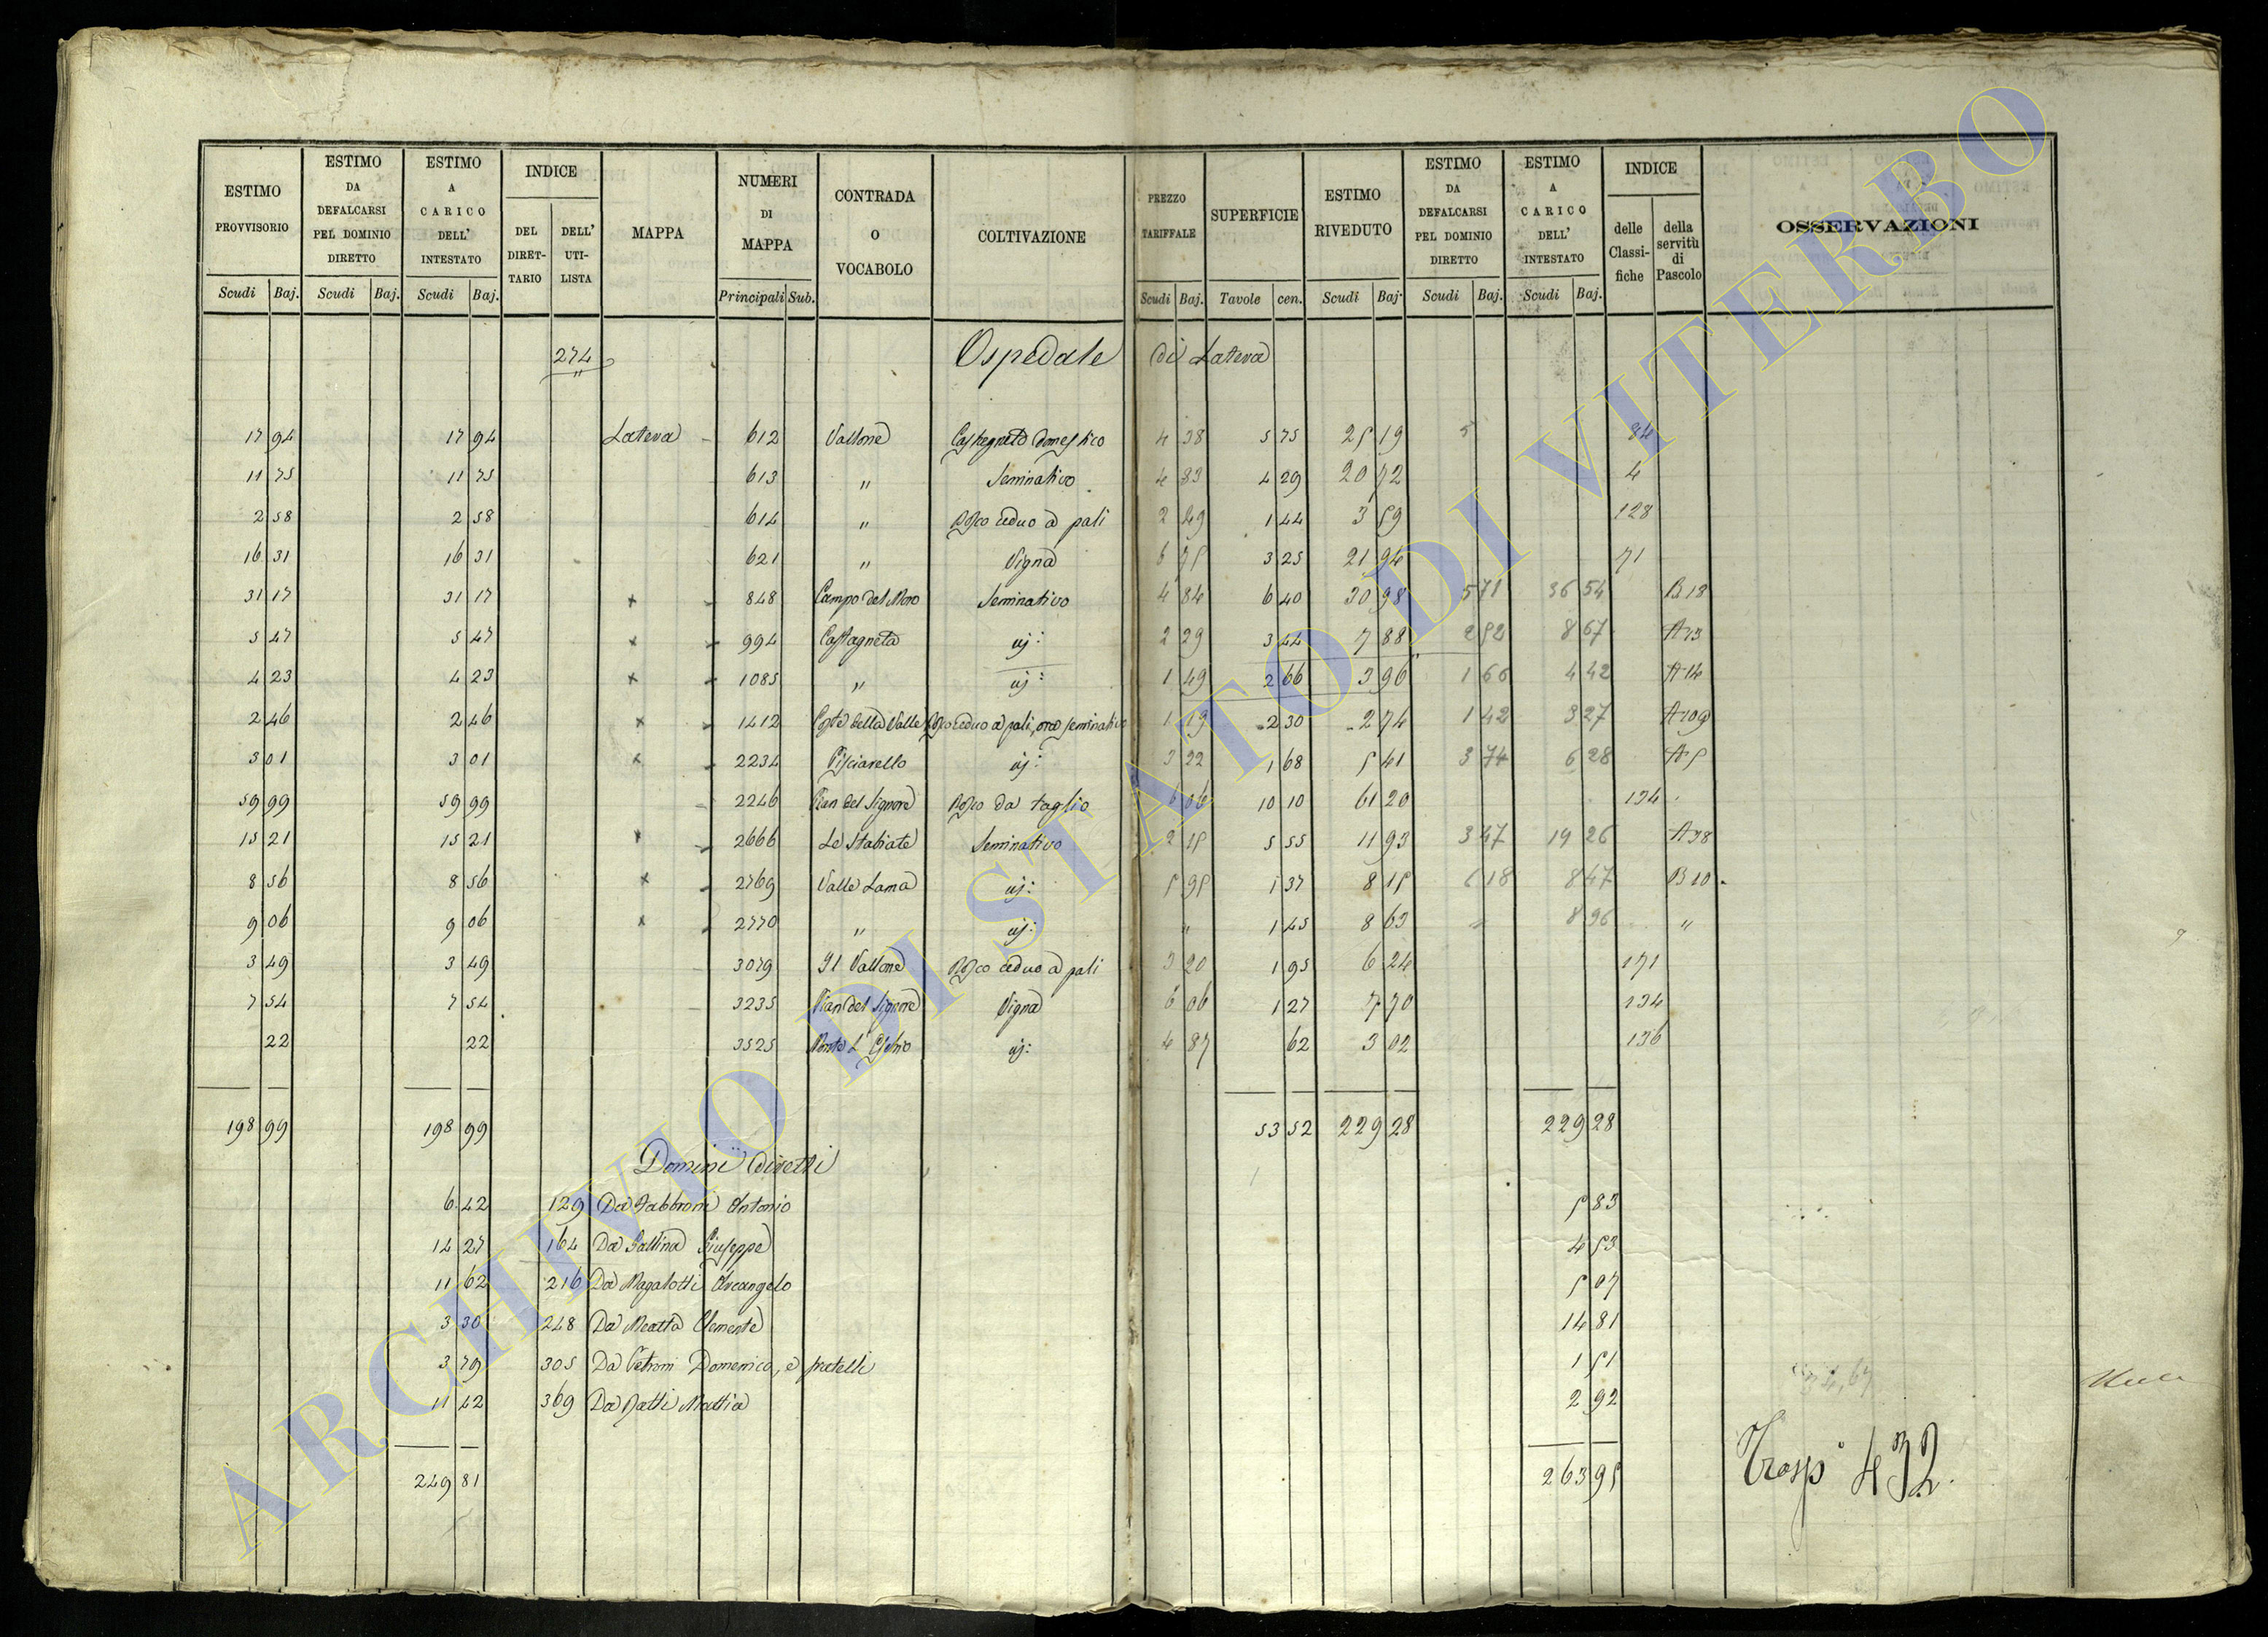 ESTIMO PROVVISORIO Scudi Baj. | ESTIMO DA DEFALCARSI PEL DOMINIO DIRETTO Scudi Baj. | ESTIMO A CARICO DELL' INTESTATO Scudi Baj. | INDICE DEL DIRET-TARIO DELL' UTI-LISTA | MAPPA | NUMERI DI MAPPA Principali Sub. | CONTRADA O VOCABOLO | COLTIVAZIONE | PREZZO TARIFFALE Scudi Baj. | SUPERFICIE Tavole cen. | ESTIMO RIVEDUTO Scudi Baj. | ESTIMO DA DEFALCARSI PEL DOMINIO DIRETTO Scudi Baj. | ESTIMO A CARICO DELL' INTESTATO Scudi Baj. | INDICE delle Classi-fiche della servitù di Pascolo | OSSERVAZIONI
274 Ospedale di Latera
17 94 17 94 Latera 612 Vallone Castagneto domestico 4 38 5 75 25 19 84
11 75 11 75 613 " Seminativo 4 83 4 29 20 72 4
2 58 2 58 614 " Bosco ceduo a pali 2 49 1 44 3 59 128
16 31 16 31 621 " Vigna 6 75 3 25 21 94 71
31 17 31 17 x 848 Campo del Moro Seminativo 4 84 6 40 30 98 5 71 36 54 B 18
5 47 5 47 x 994 Castagneta 2 29 3 44 7 88 8 67
4 23 4 23 x 1085 " 1 49 2 66 3 96 1 66 4 42 A 14
2 46 2 46 x 1412 Coste della Valle Bosco ceduo a pali, ora seminativo 1 19 2 30 2 74 1 42 3 27 A 109
3 01 3 01 x 2234 Pisciarello 3 22 1 68 5 41 3 74 6 28 A 5
59 99 59 99 2246 Pian del Signore Bosco da taglio 6 06 10 10 61 20 134
15 21 15 21 x 2666 Le Stabiate Seminativo 2 15 5 55 11 93 3 47 19 26 A 38
8 56 8 56 x 2769 Valle Lama 5 95 1 37 8 15 6 18 8 47 B 10
9 06 9 06 x 2770 " " 1 45 8 63 " 8 96 "
3 49 3 49 3079 Il Vallone Bosco ceduo a pali 3 20 1 95 6 24 171
7 54 7 54 3235 Pian del Signore Vigna 6 06 1 27 7 70 134
22 22 3525 4 87 62 3 02 136
198 99 198 99 53 52 229 28 229 28
Dominii diretti
6 42 129 Da Fabbroni Antonio 5 83
14 27 164 Da Gallina Giuseppe 4 53
11 62 216 Da Magalotti Arcangelo 5 07
3 30 248 Da Meatta Clemente 14 81
3 79 305 Da Petroni Domenico, e fratelli 1 51
11 42 369 Da Mattia 2 92
249 81 263 95
Trasp° 432.
ARCHIVIO DI STATO DI VITERBO